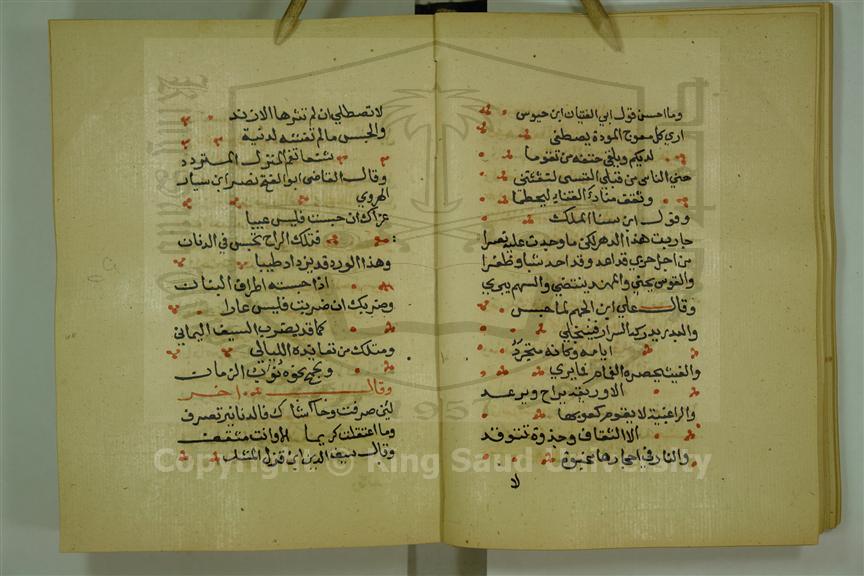 وما احسن قول ابي الفتيان ابن حيوس
اري كل معوج المودة يصطفى
لديكم ويلقى حتفه من تقوما
حني الناس من قبلي القسي لتقتنى
وثقف منآد القناة ليحطما
وقول ابن سنا الملك
حاربت هذا الدهر لكن ما وجدت عليه نصرا
من اجل حربي قد اعد وقد احد نبا وظفرا
والقوس يحنى والمهند ينتضي والسهم يبري
وقال علي ابن الجهم لما حبس
والبدر يدركه السرار فينجلي
ايامه وكانه متجرد
والغيث يحصره الغمام فما يري
الا وريقه يراح ويرعد
والزاعبية لا يقوم كعوبها
الا الثقاف وجذوة تتوقد
والنار في احجارها مخبوة
لا
لا تصطلي ان لم تثرها الازند
والحبس ما لم تغشه لدنية
شنعا نعم المنزل المتورد
وقال القاضي ابو الفتح نصر ابن سيار
الهروي
عزآك ان حبست فليس عيبا
فتلك الراح تحبس في الدنان
وهذا الورد قد يزداد طيبا
اذا حبسته اطراف البنان
وضربك ان ضربت فليس عارا
كما قد يضرب السيف اليماني
ومثلك من تفايده الليالي
نحوه نوب الزمان
وقال اخر
لئن صرفت وحاشاك فالدنانير تصرف
وما اعتقلت كريما الا وانت مثقف
وقال سيف الدين ابن قزل المشد
Copyright © King Saud University
1957